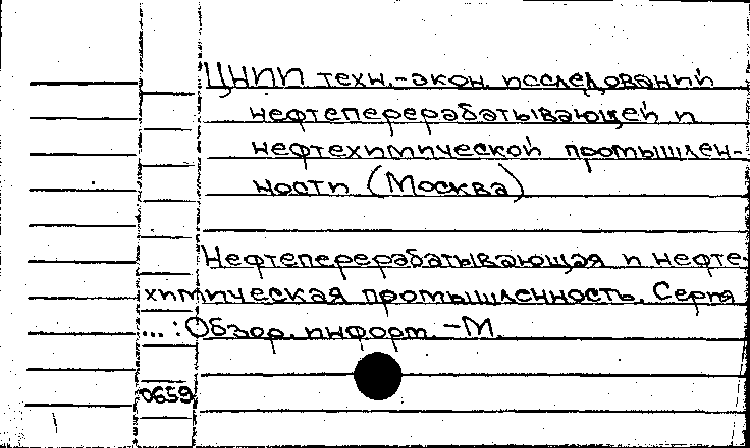 ЦНИИ техн.-экон. исследований
нефтеперерабатывающей и
нефтехимической промышлен-
ности (Москва)
Нефтеперерабатывающая и нефте-
химическая промышленность. Серия
... : Обзор. информ. – М.
0659